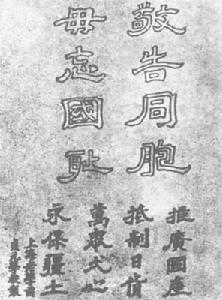 敬告同胞
毋忘國耻
推廣國產
抵制日貨
萬眾弌心
永保疆土